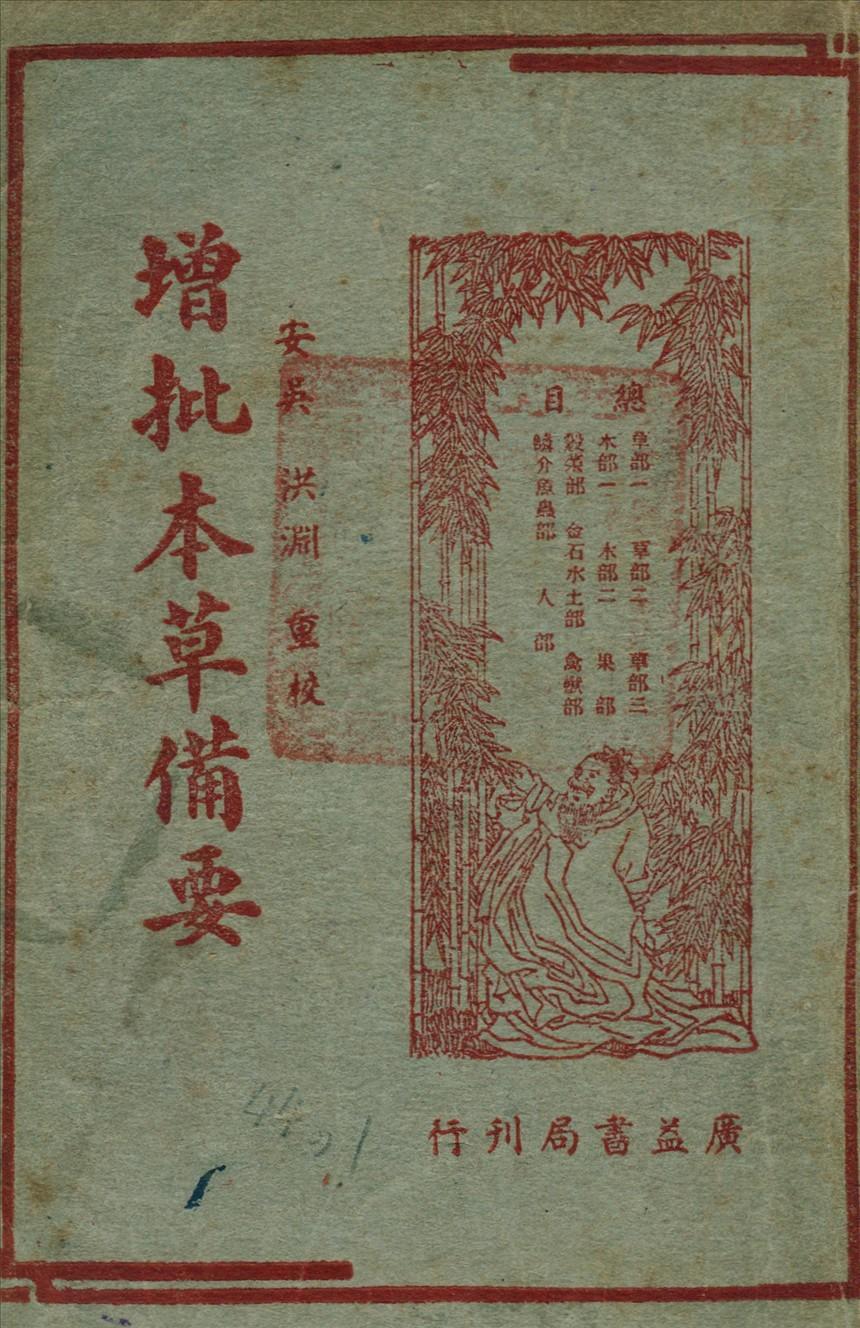 總目
草部一 草部二 草部三
木部一 木部二 果部
穀菜部 金石水土部 禽獸部
鱗介魚蟲部 人部
安吳 洪淵 重校
增批本草備要
廣益書局刊行